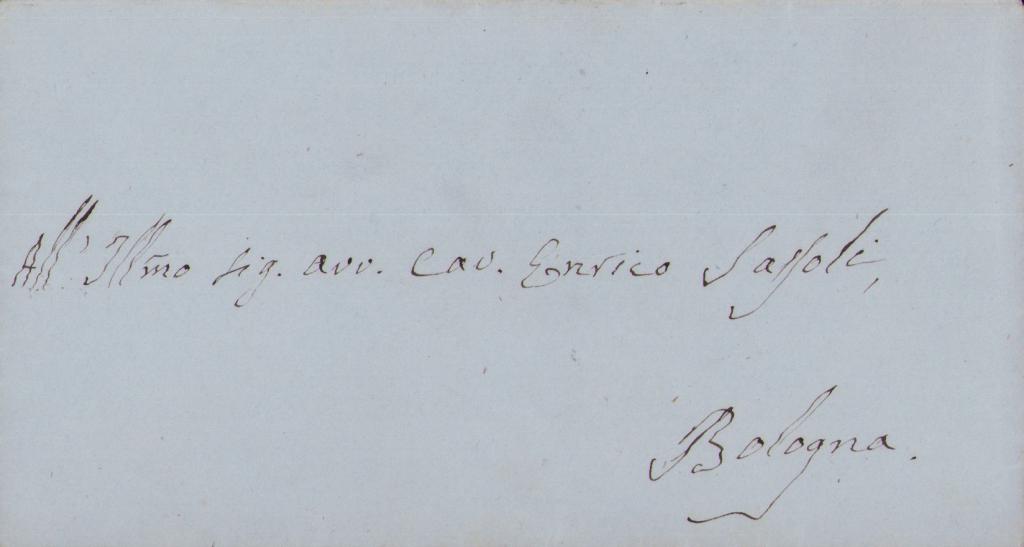 All' Illmo sig. avv. Cav. Enrico Sassoli,
Bologna.